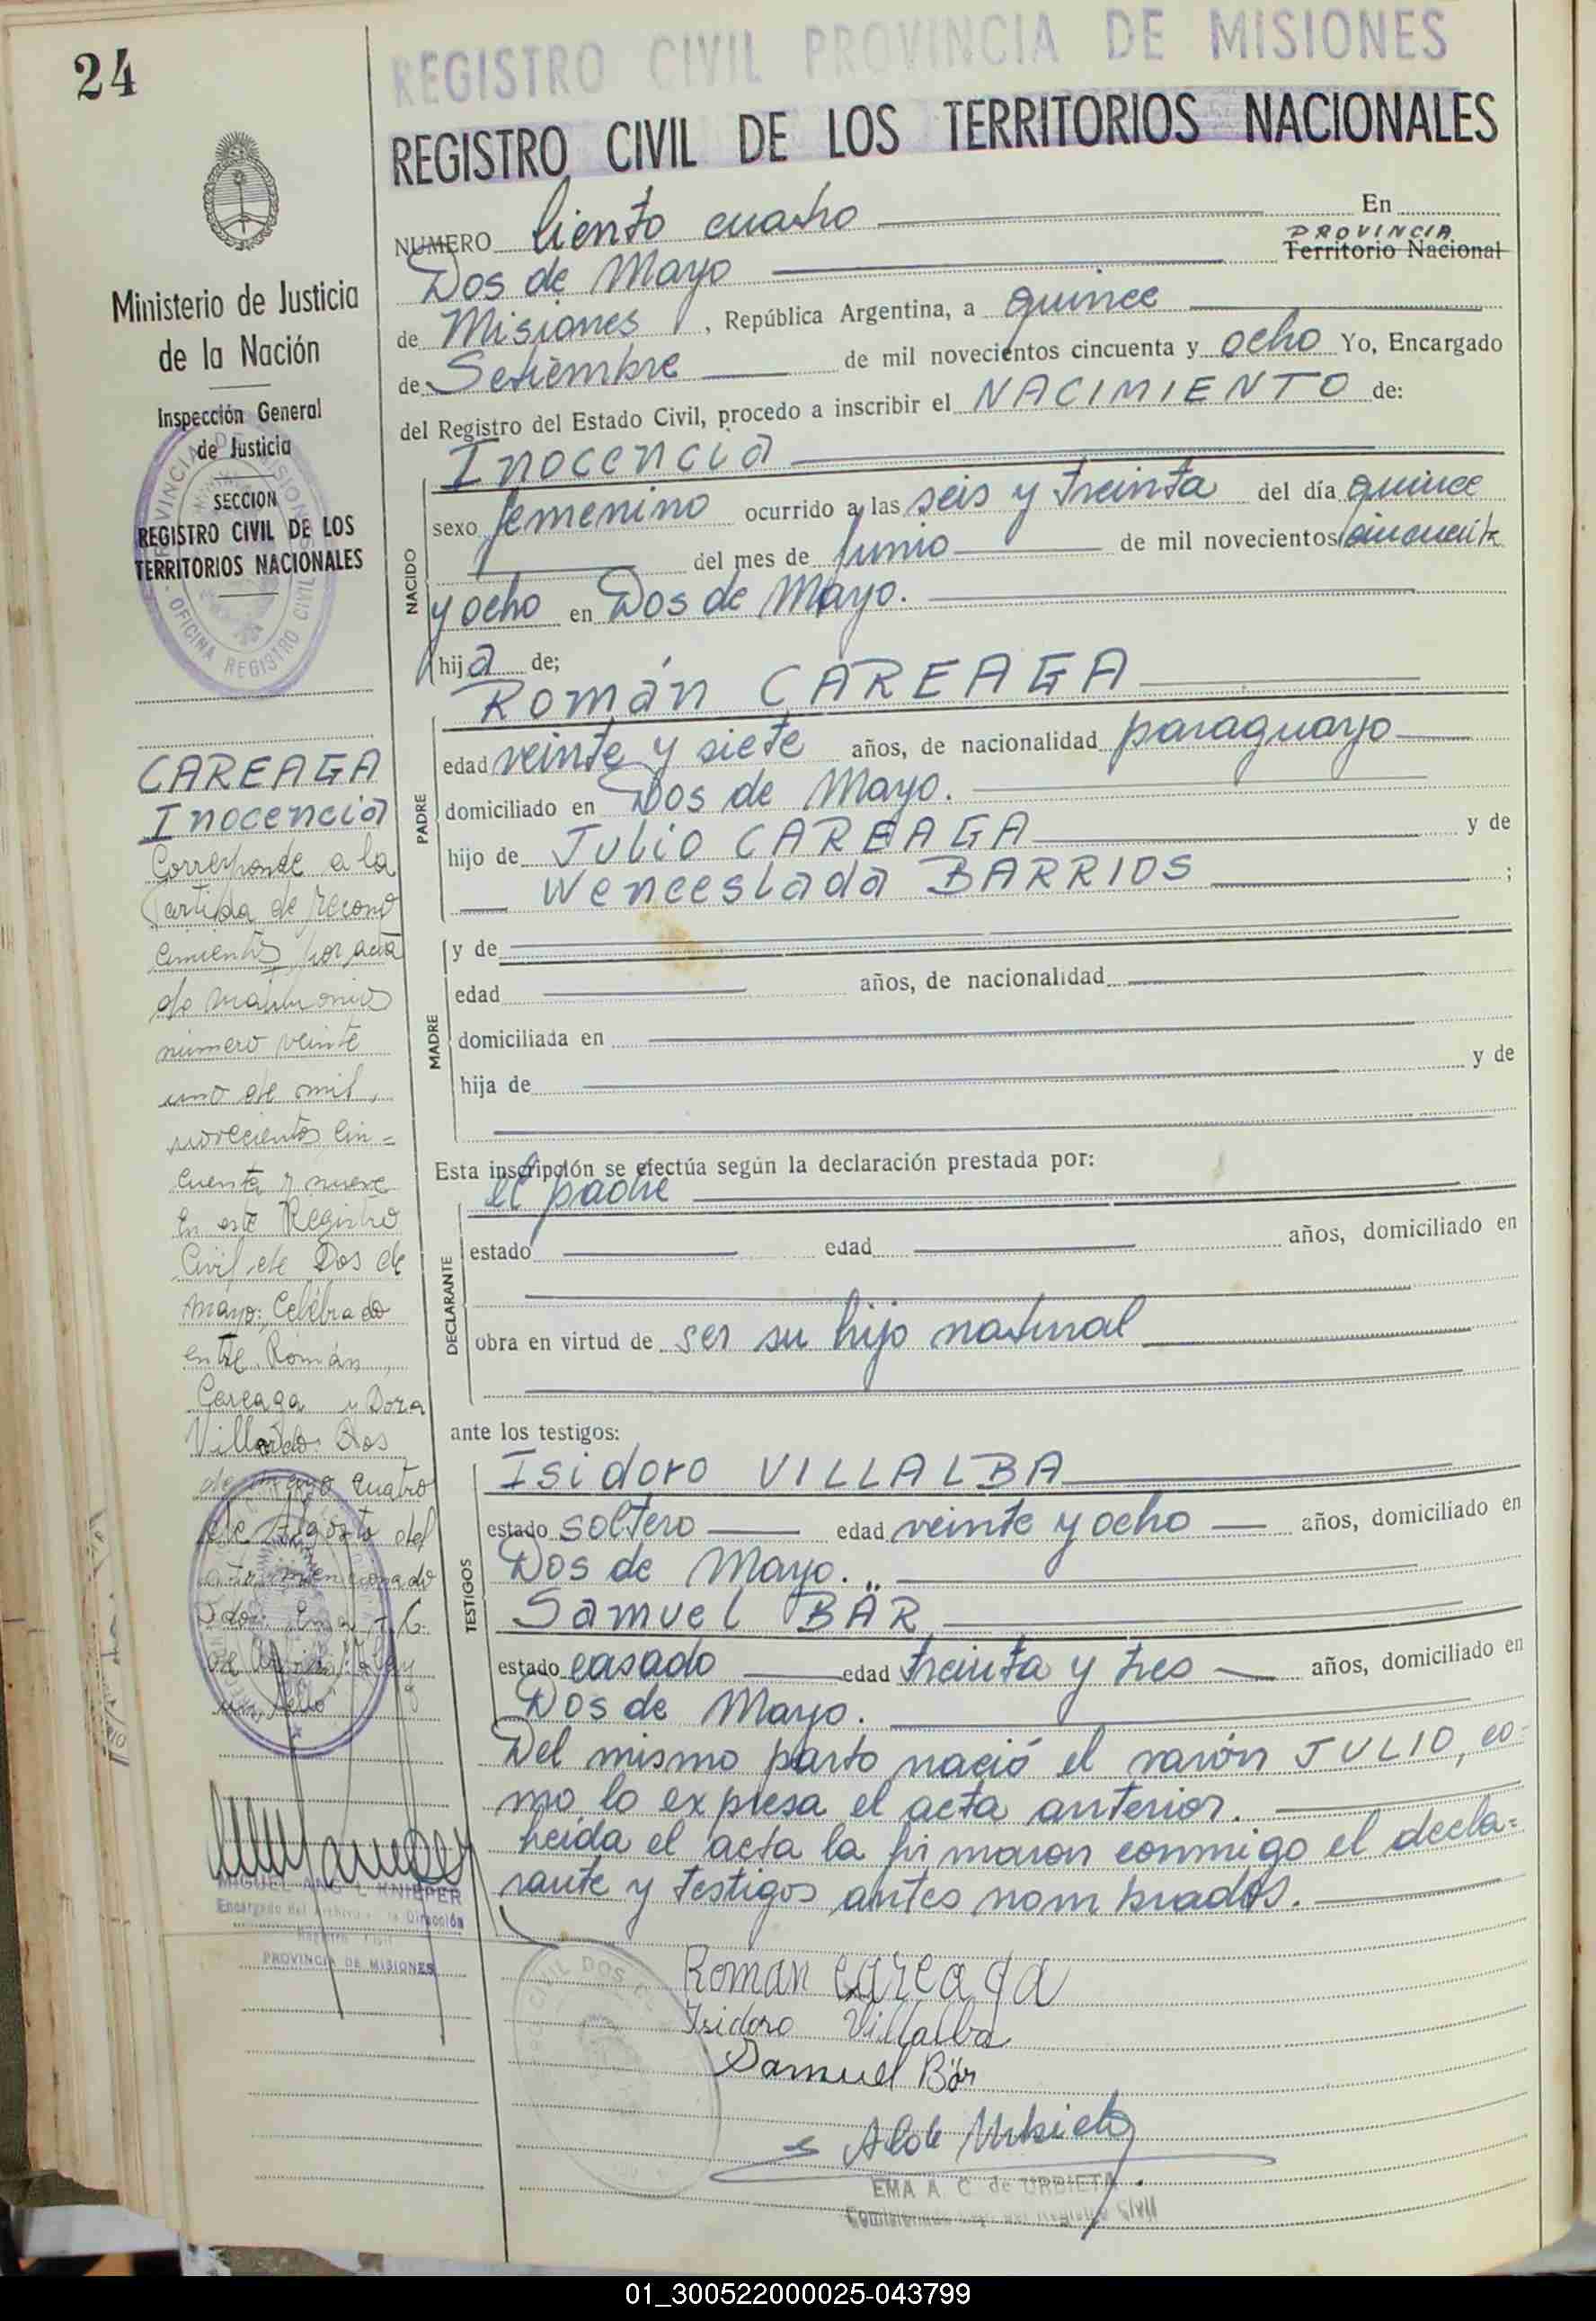 24
REGISTRO CIVIL PROVINCIA DE MISIONES
REGISTRO CIVIL DE LOS TERRITORIOS NACIONALES
NUMERO Ciento cuatro En
Dos de Mayo PROVINCIA Territorio Nacional
de Misiones, República Argentina, a quince
de Setiembre de mil novecientos cincuenta y ocho Yo, Encargado
del Registro del Estado Civil, procedo a inscribir el NACIMIENTO de:
Inocencia
NACIDO
sexo femenino ocurrido a las seis y treinta del día quince
del mes de Junio de mil novecientos cincuenta
y ocho en Dos de Mayo.
hija de;
Román CAREAGA
PADRE
edad veinte y siete años, de nacionalidad paraguayo
domiciliado en Dos de Mayo.
hijo de Julio CAREAGA y de
Wenceslada BARRIOS ;
MADRE
y de
edad años, de nacionalidad
domiciliada en
hija de y de
Esta inscripción se efectúa según la declaración prestada por:
el padre
DECLARANTE
estado edad años, domiciliado en
obra en virtud de ser su hijo natural
ante los testigos:
TESTIGOS
Isidoro VILLALBA
estado soltero edad veinte y ocho años, domiciliado en
Dos de Mayo.
Samuel BÄR
estado casado edad treinta y tres años, domiciliado en
Dos de Mayo.
Del mismo parto nació el varón JULIO, co-
mo lo expresa el acta anterior.
Leída el acta la firmaron conmigo el decla=
rante y testigos antes nombrados.
Roman careaga
Isidoro Villalba
Samuel Bär
EMA A. C. de URBIETA
Ministerio de Justicia
de la Nación
Inspección General
de Justicia
SECCION
REGISTRO CIVIL DE LOS
TERRITORIOS NACIONALES
OFICINA REGISTRO CIVIL
CAREAGA
Inocencia
Corresponde a la
Partida de recono
cimiento, por acta
de matrimonio
número veinte
uno de mil,
novecientos cin=
cuenta y nueve
En este Registro
Civil de Dos de
Mayo: Celebrado
entre Román
Careaga y Dora
Dos
de mayo cuatro
de Agosto del
año mencionado
un sello
MIGUEL ANGEL KNIEPER
Encargado del Archivo de la Dirección
Registro Civil
PROVINCIA DE MISIONES
01_300522000025-043799